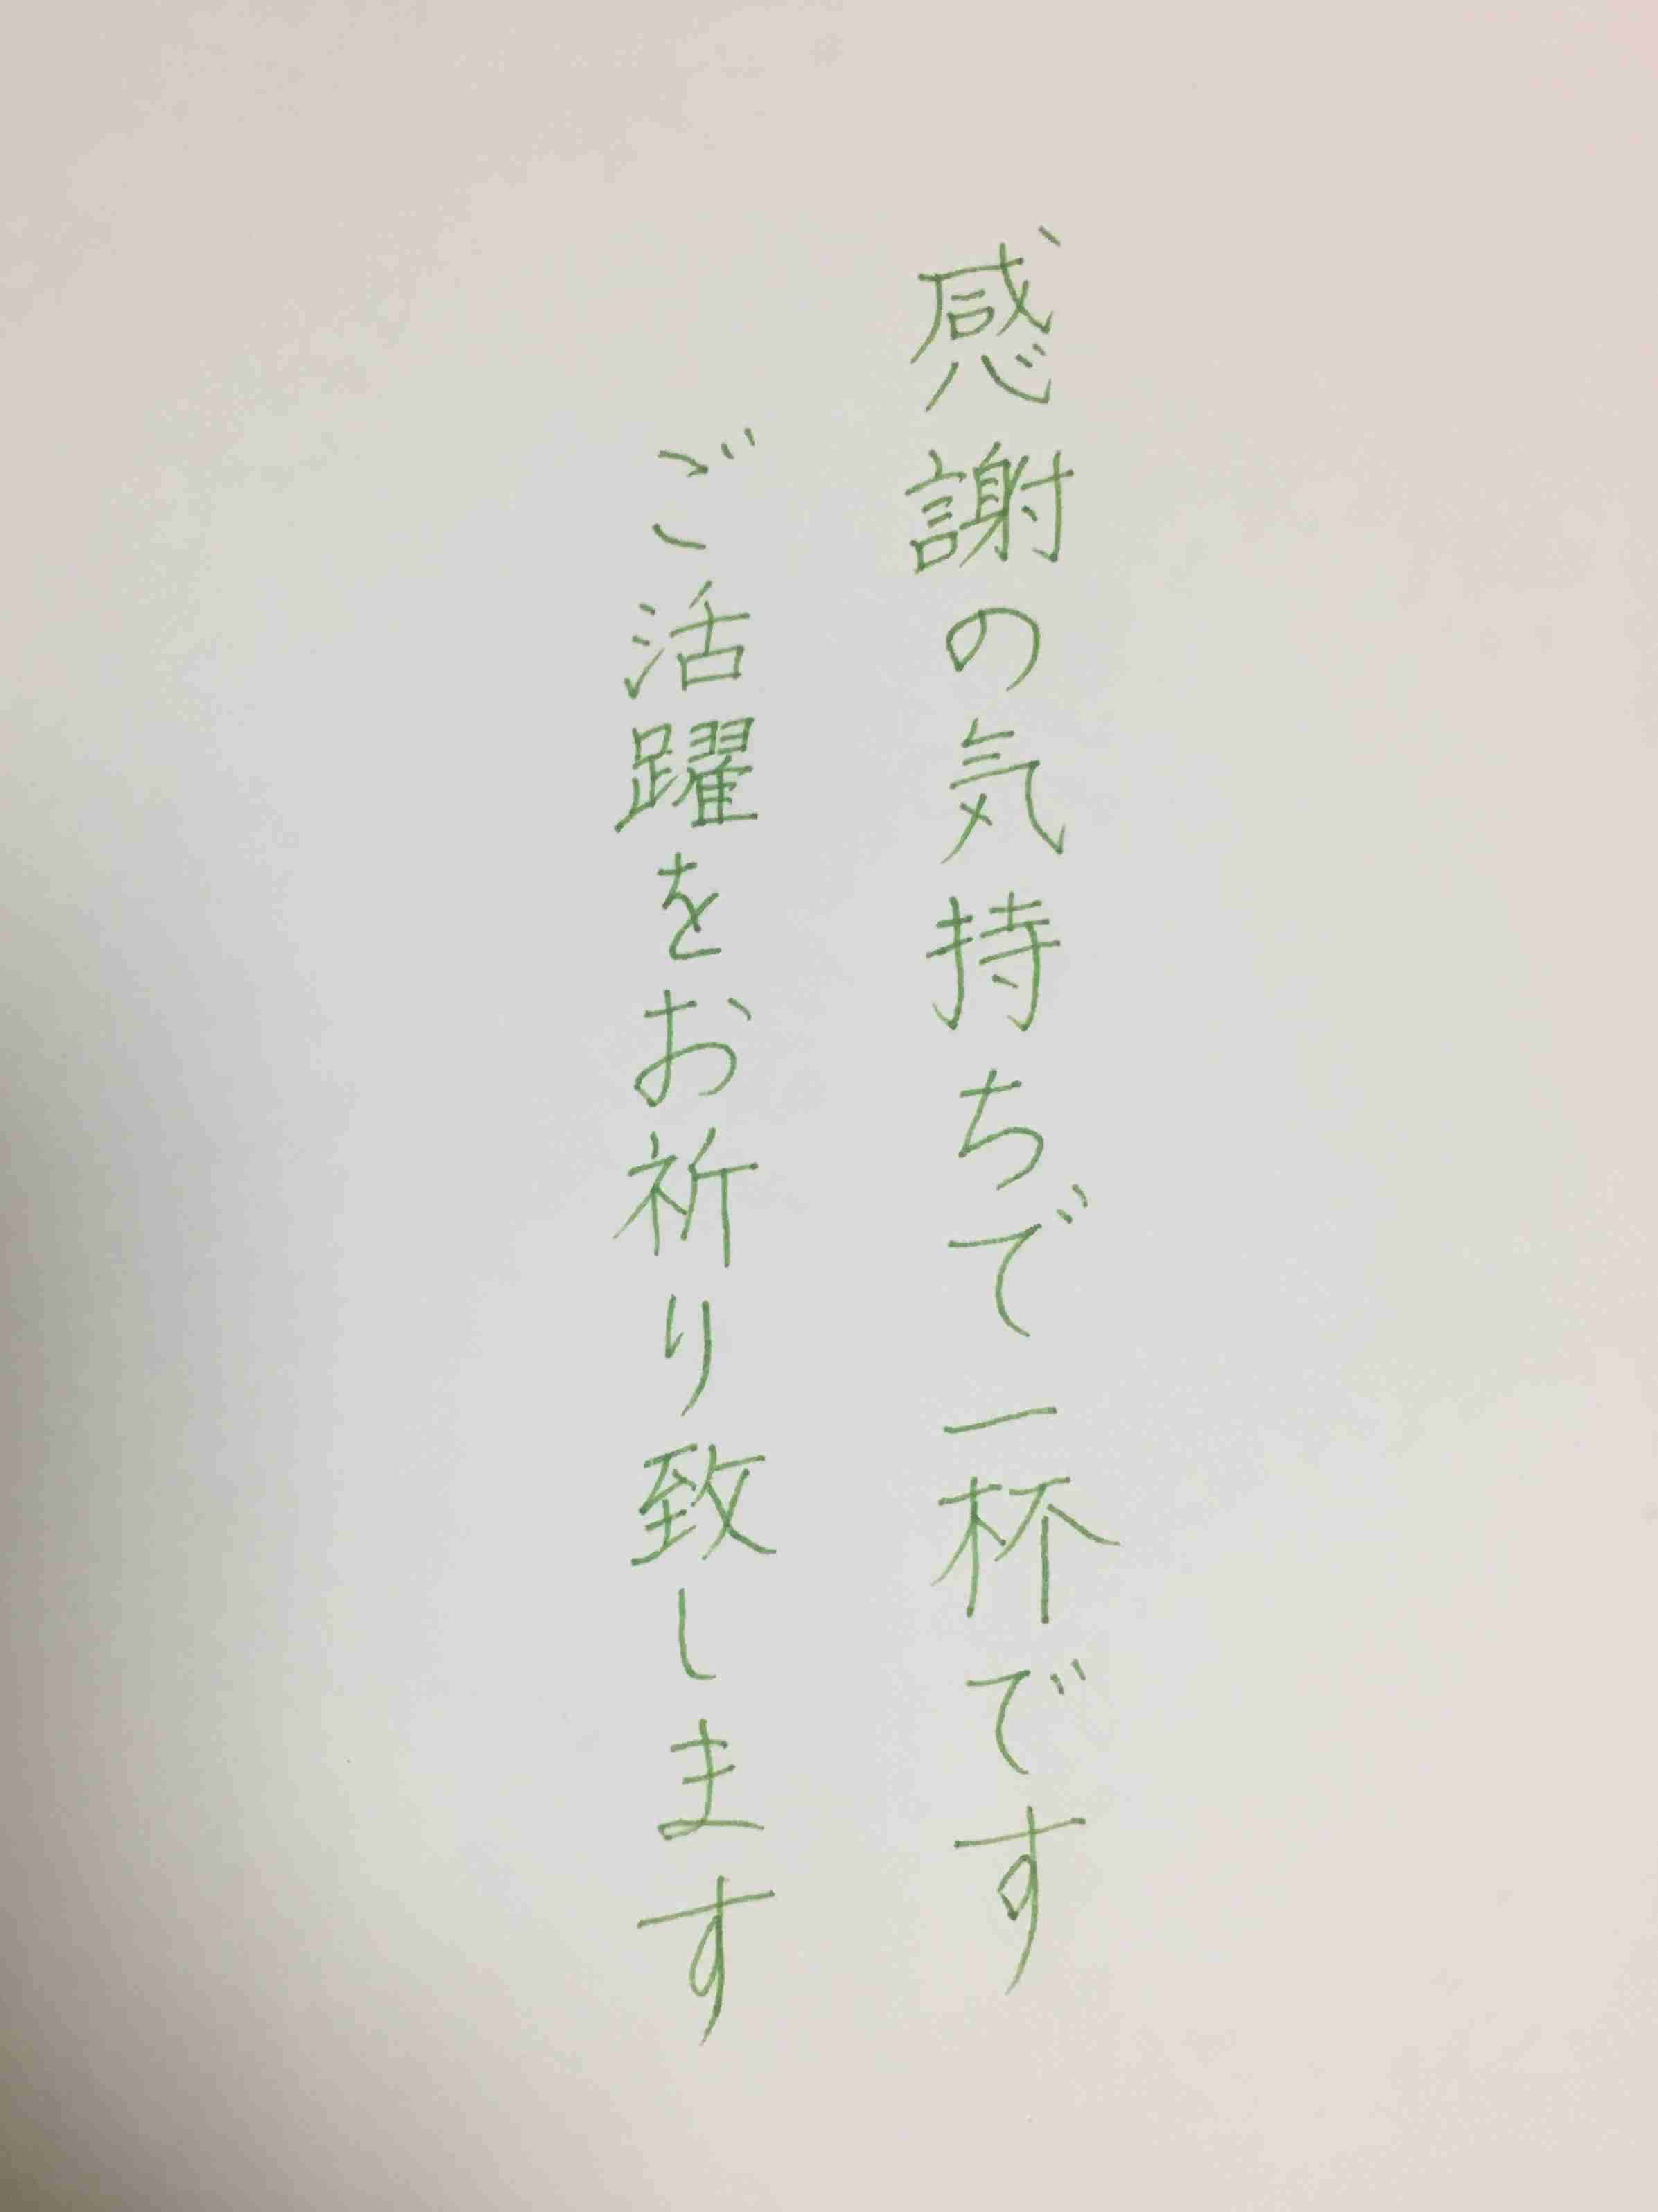 感謝の気持ちで一杯です
ご活躍をお祈り致します